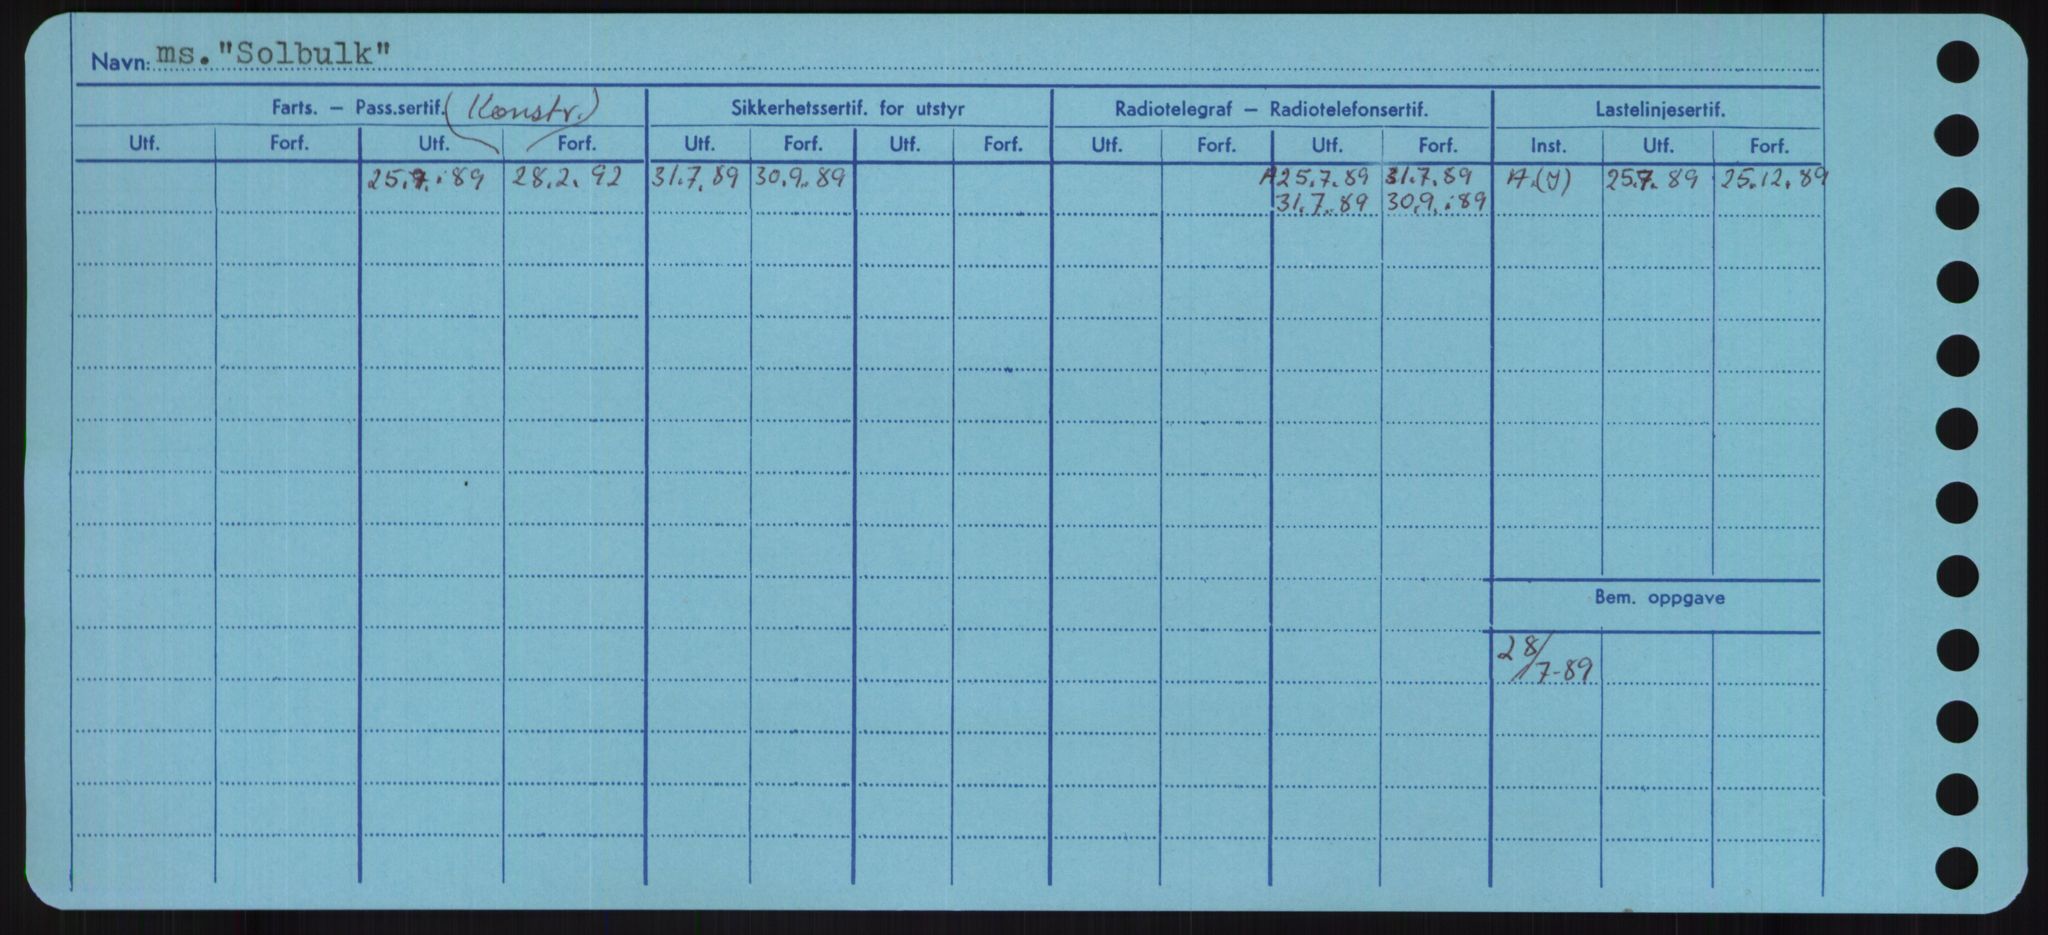 Navn: ms. "Solbulk"
Farts. – Pass.sertif. (Konstr.) Sikkerhetssertif. for utstyr Radiotelegraf – Radiotelefonsertif. Lastelinjesertif.
Utf. Forf. Utf. Forf. Utf. Forf. Utf. Forf. Utf. Forf. Utf. Forf. Inst. Utf. Forf.
25.7.89 28.2.92 31.7.89 30.9.89 A 25.7.89 31.7.89 A.(J) 25.7.89 25.12.89
31.7.89 30.9.89
Bem. oppgave
28/7-89